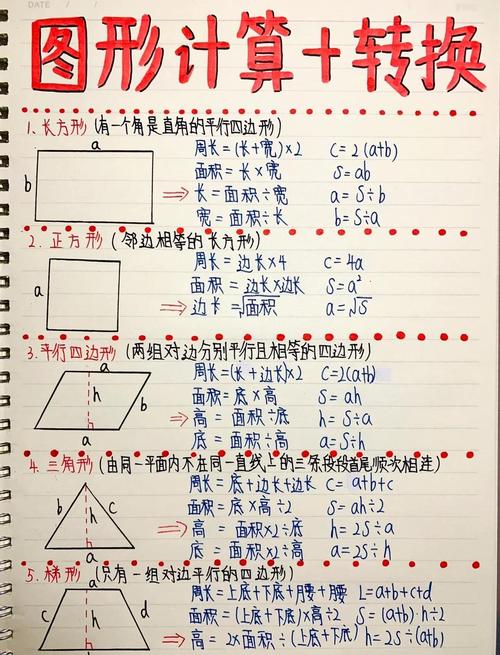 DATE
图形计算+转换
1. 长方形 (有一个角是直角的平行四边形)
a
b
周长=(长+宽)×2 C=2(a+b)
面积=长×宽 S=ab
⇒ 长=面积÷宽 a=S÷b
宽=面积÷长 b=S÷a
2. 正方形 (邻边相等的长方形)
a
周长=边长×4 C=4a
面积=边长×边长 S=a²
⇒ 边长=√面积 a=√S
3. 平行四边形 (两组对边分别平行且相等的四边形)
a
h
b
a
周长=(长+边长)×2 C=2(a+b)
面积=底×高 S=ah
⇒ 高=面积÷底 h=S÷a
底=面积÷高 a=S÷h
4. 三角形 (由同一平面内不在同一直线上的三条段段首尾顺次相连)
b
h
c
a
周长=底+边长+边长 C=a+b+c
面积=底×高÷2 S=ah÷2
⇒ 高=面积×2÷底 h=2S÷a
底=面积×2÷高 a=2S÷h
5. 梯形 (只有一组对边平行的四边形)
a
c
h
d
b
周长=上底+下底+腰+腰 L=a+b+c+d
面积=(上底+下底)×高÷2 S=(a+b)·h÷2
⇒ 高=2×面积÷(上底+下底) h=2S÷(a+b)